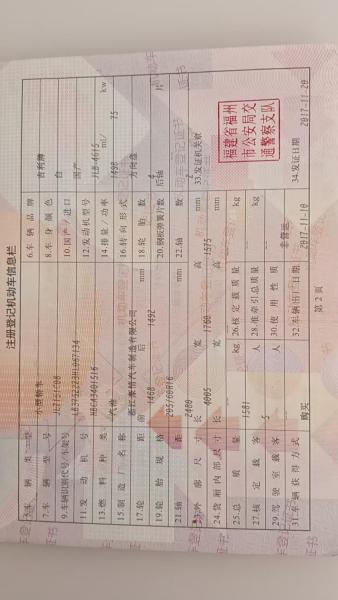 注册登记机动车信息栏
5.车辆类型 小型轿车 6.车辆品牌 吉利牌
7.车辆型号 8.车身颜色 白
9.车辆识别代号/车架号 10.国产/进口 国产
11.发动机号 12.发动机型号
13.燃料种类 汽油 14.排量/功率 1498 ml/ 75 kw
15.制造厂名称 浙江豪情汽车制造有限公司 16.转向形式 方向盘
17.轮距 前 1468 后 1492 mm 18.轮胎数 4
19.轮胎规格 20.钢板弹簧片数 后轴 片
21.轴距 2480 mm 22.轴数 2
23.外廓尺寸 长 4005 宽 1760 高 1575 mm 33.发证机关章
24.货厢内部尺寸 长 宽 高 mm
福建省福州
市公安局交
通警察支队
25.总质量 1581 kg 26.核定载质量 kg
27.核定载客 5 人 28.准牵引总质量 kg
29.驾驶室载客 人 30.使用性质 非营运
31.车辆获得方式 购买 32.车辆出厂日期 2017-11-10 34.发证日期 2017-11-20
第2页